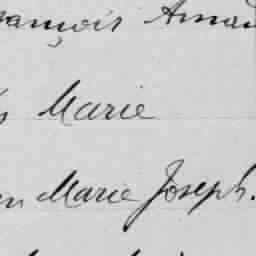 ançois Aman
Marie
en Marie Joseph.